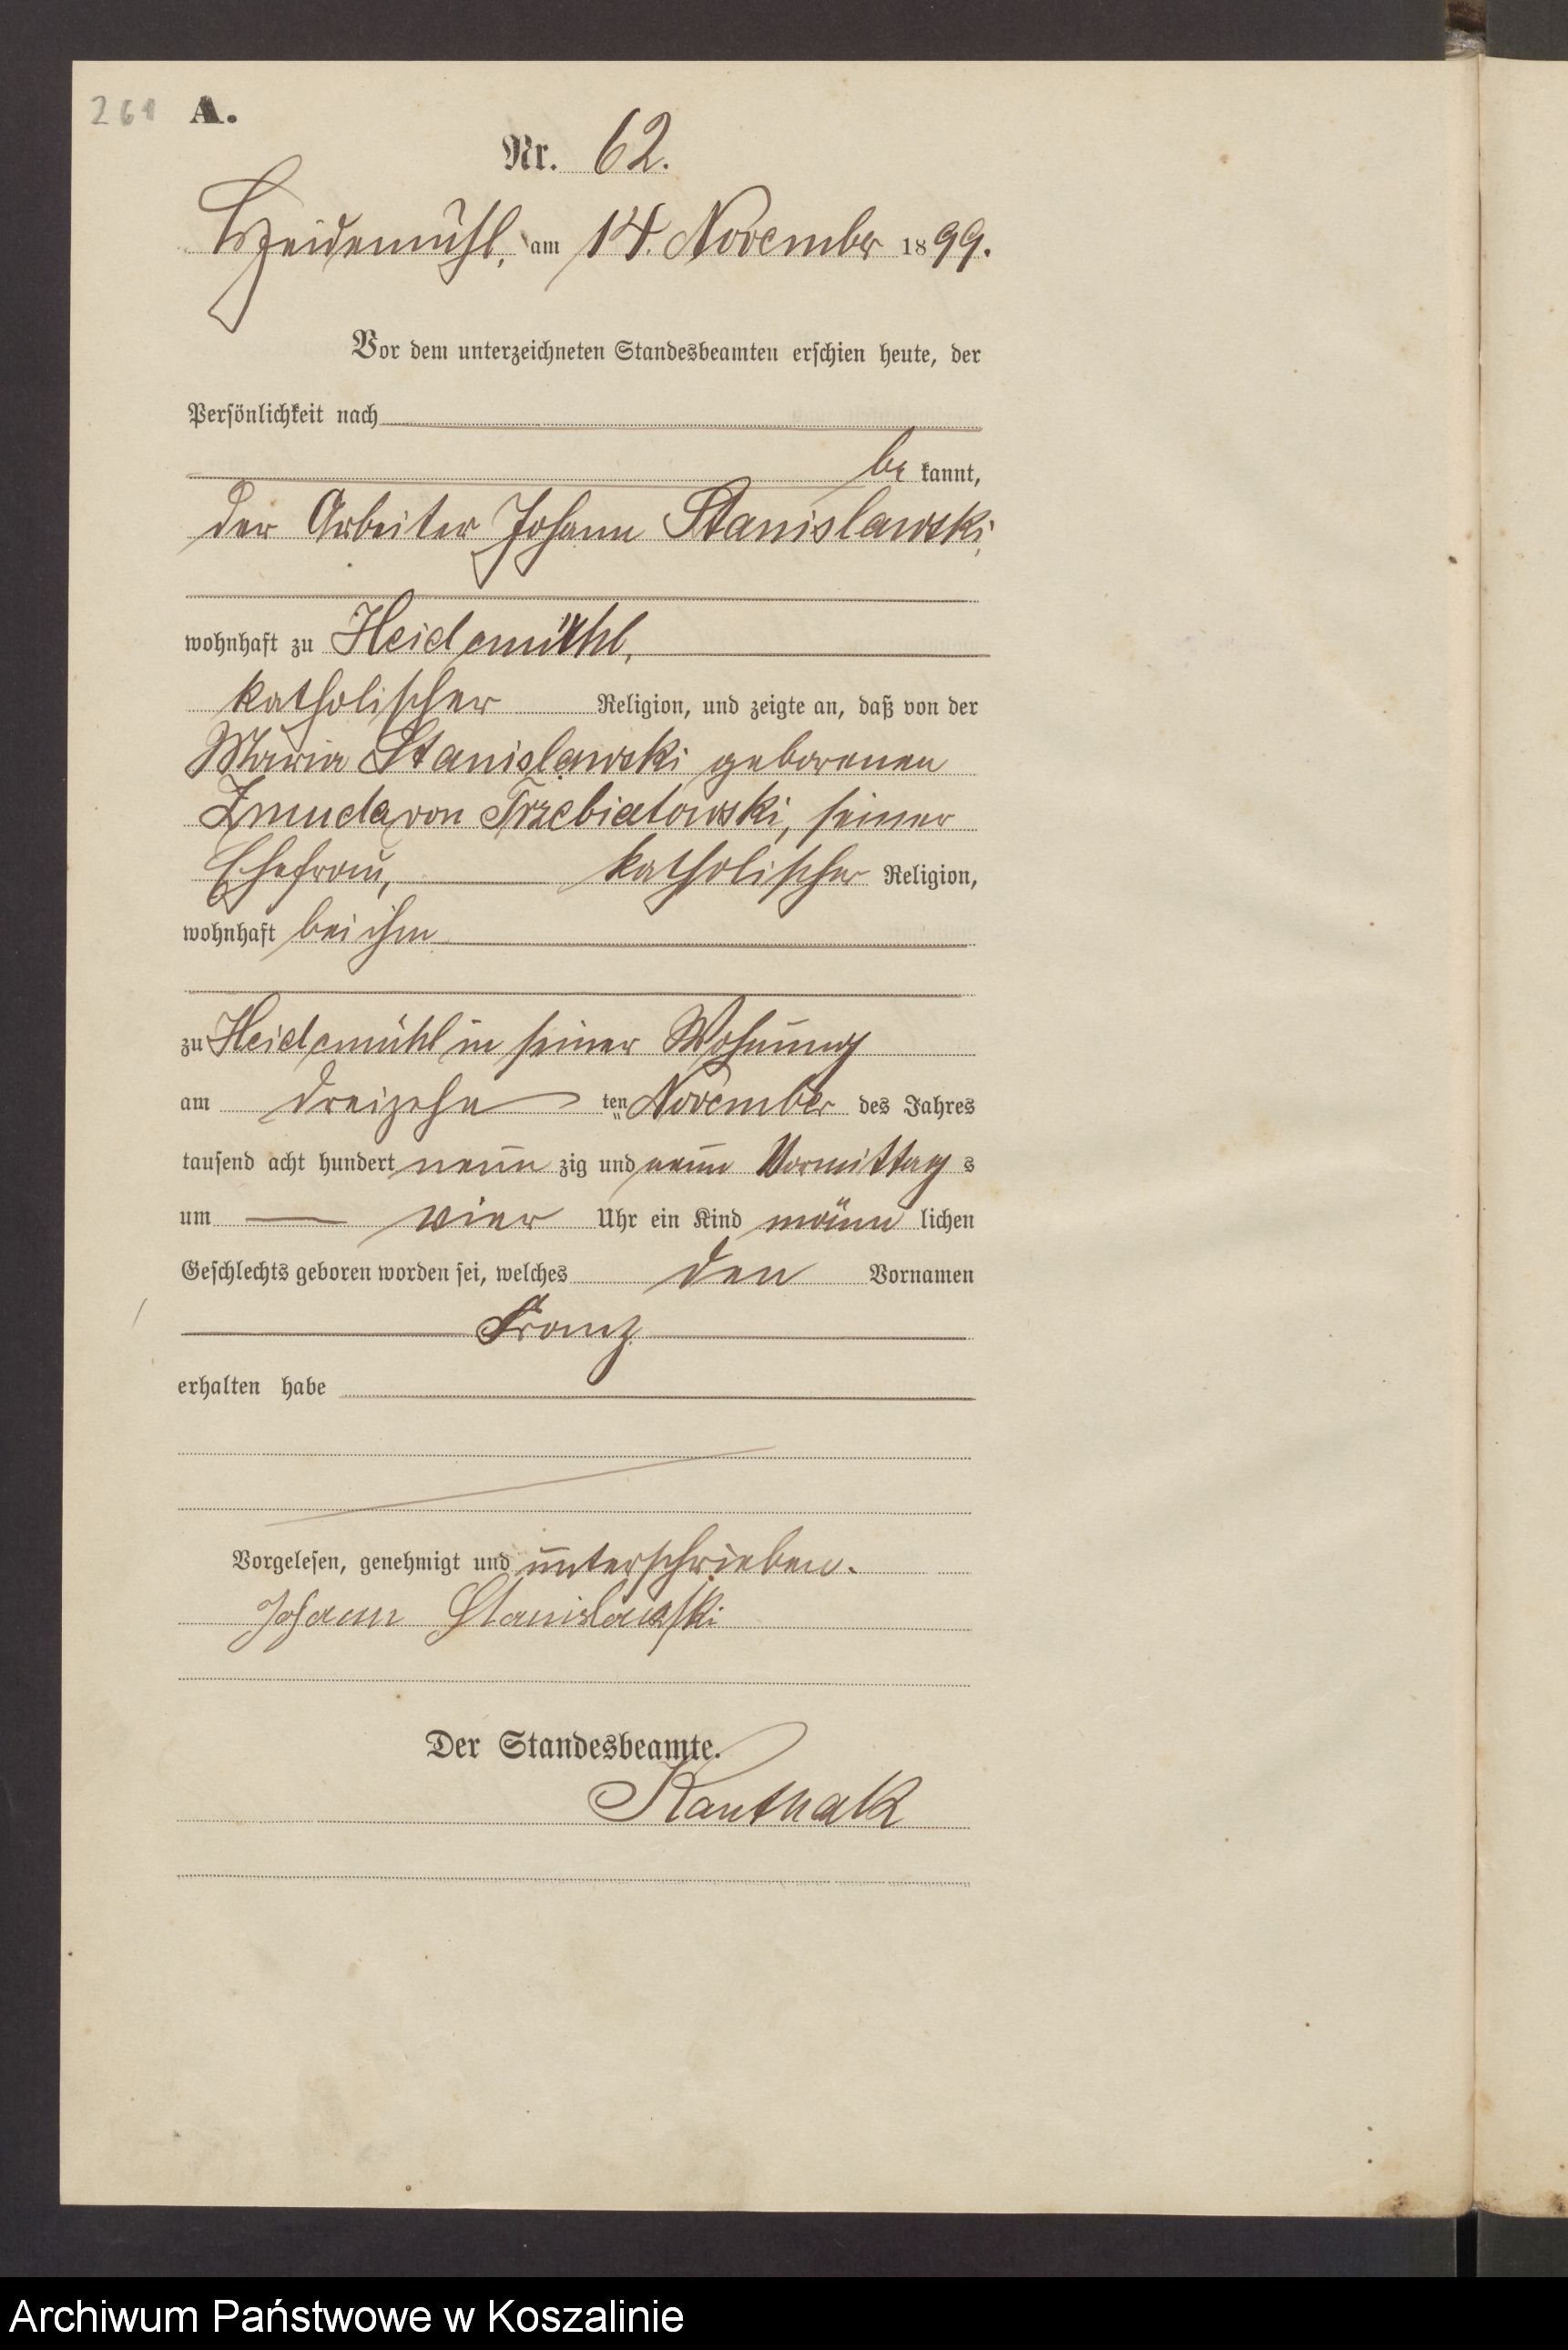 261 A.
Nr. 62.
Heidemühl, am 14. November 1899.
Vor dem unterzeichneten Standesbeamten erschien heute, der
Persönlichkeit nach
be kannt,
der Arbeiter Johann Stanislawski,
wohnhaft zu Heidemühl,
katholischer Religion, und zeigte an, daß von der
Maria Stanislawski geborenen
Zmuda von Trzebiatowski, seiner
Ehefrau, katholischer Religion,
wohnhaft bei ihm
zu Heidemühl in seiner Wohnung
am dreizehn ten November des Jahres
tausend acht hundert neun zig und neun Vormittag s
um vier Uhr ein Kind männ lichen
Geschlechts geboren worden sei, welches den Vornamen
Franz
erhalten habe
Vorgelesen, genehmigt und unterschrieben.
Johann Stanislawski
Der Standesbeamte.
Kauthak
Archiwum Państwowe w Koszalinie